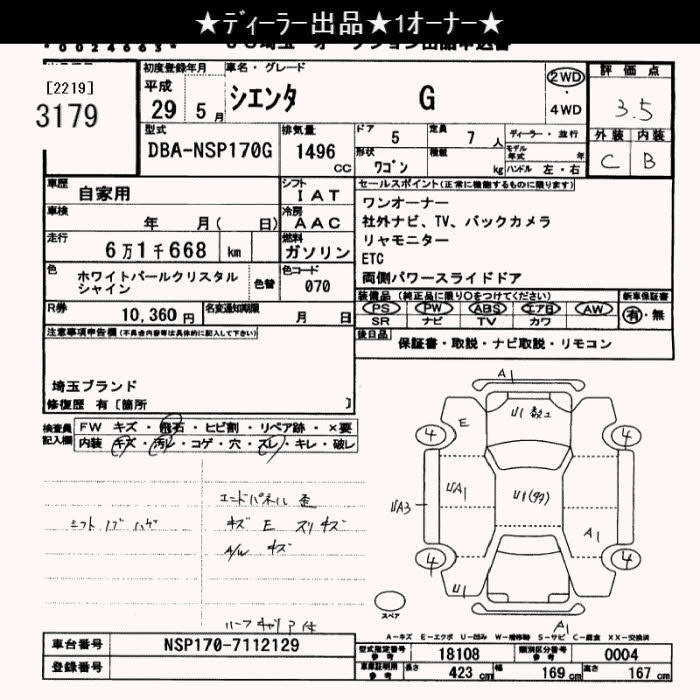 ★ディーラー出品★1オーナー★
*0024663*
[2219]
3179
初度登録年月
平成
29 5月
車名・グレード
シエンタ G
2WD
・
4WD
評価点
3.5
外装 内装
C B
型式
DBA-NSP170G
排気量
1496
CC
ドア 5
定員 7人
ディーラー・並行
形状
ワゴン
積載 kg
モデル年式 年
ハンドル 左・右
車歴
自家用
シフト
IAT
車検
年 月( 日)
冷房
AAC
走行
6万1千668 km
燃料
ガソリン
色
ホワイトパールクリスタル
シャイン
色替
色コード
070
R券
10,360円
名変通知期限
月 日
セールスポイント(正常に機能するものに限ります)
ワンオーナー
社外ナビ、TV、バックカメラ
リヤモニター
ETC
両側パワースライドドア
装備品(純正品に限り○をつけてください)
新車保証書
PS PW ABS エアB AW
SR ナビ TV カワ
有・無
後日品
保証書・取説・ナビ取説・リモコン
注意事項申告欄(不具合内容等は具体的に記入して下さい)
埼玉ブランド
修復歴 有[箇所 ]
検査員
記入欄
FW キズ・飛石・ヒビ割・リペア跡・×要
内装 キズ・汚レ・コゲ・穴・スレ・キレ・破レ
シフトノブ ハゲ
エンドパネル 歪
キズ E スリキズ
A/W キズ
ルーフキャリア付
A1
E
4
4
UA1
UA3
A1
4
4
U1
A1
スペア
A-キズ E-エクボ U-凹み W-補修跡 S-サビ C-腐食 XX-交換済
車台番号
NSP170-7112129
登録番号
型式指定番号
参考
18108
類別区分番号
参考
0004
車庫証明用
参考
長さ 423 cm
幅 169 cm
高さ 167 cm